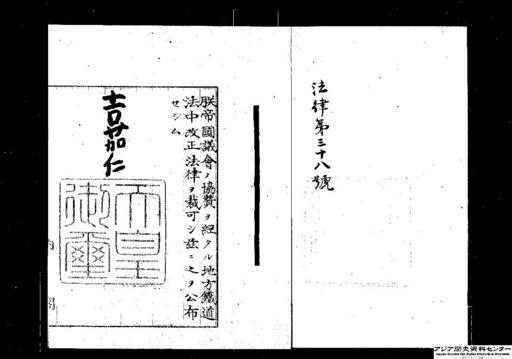 法律第三十八號
朕帝國議會ノ協賛ヲ經タル地方鐵道
法中改正法律ヲ裁可シ玆ニ之ヲ公布
セシム
嘉仁
天皇
御璽
内閣
アジア歴史資料センター
Japan Center for Asian Historical Records